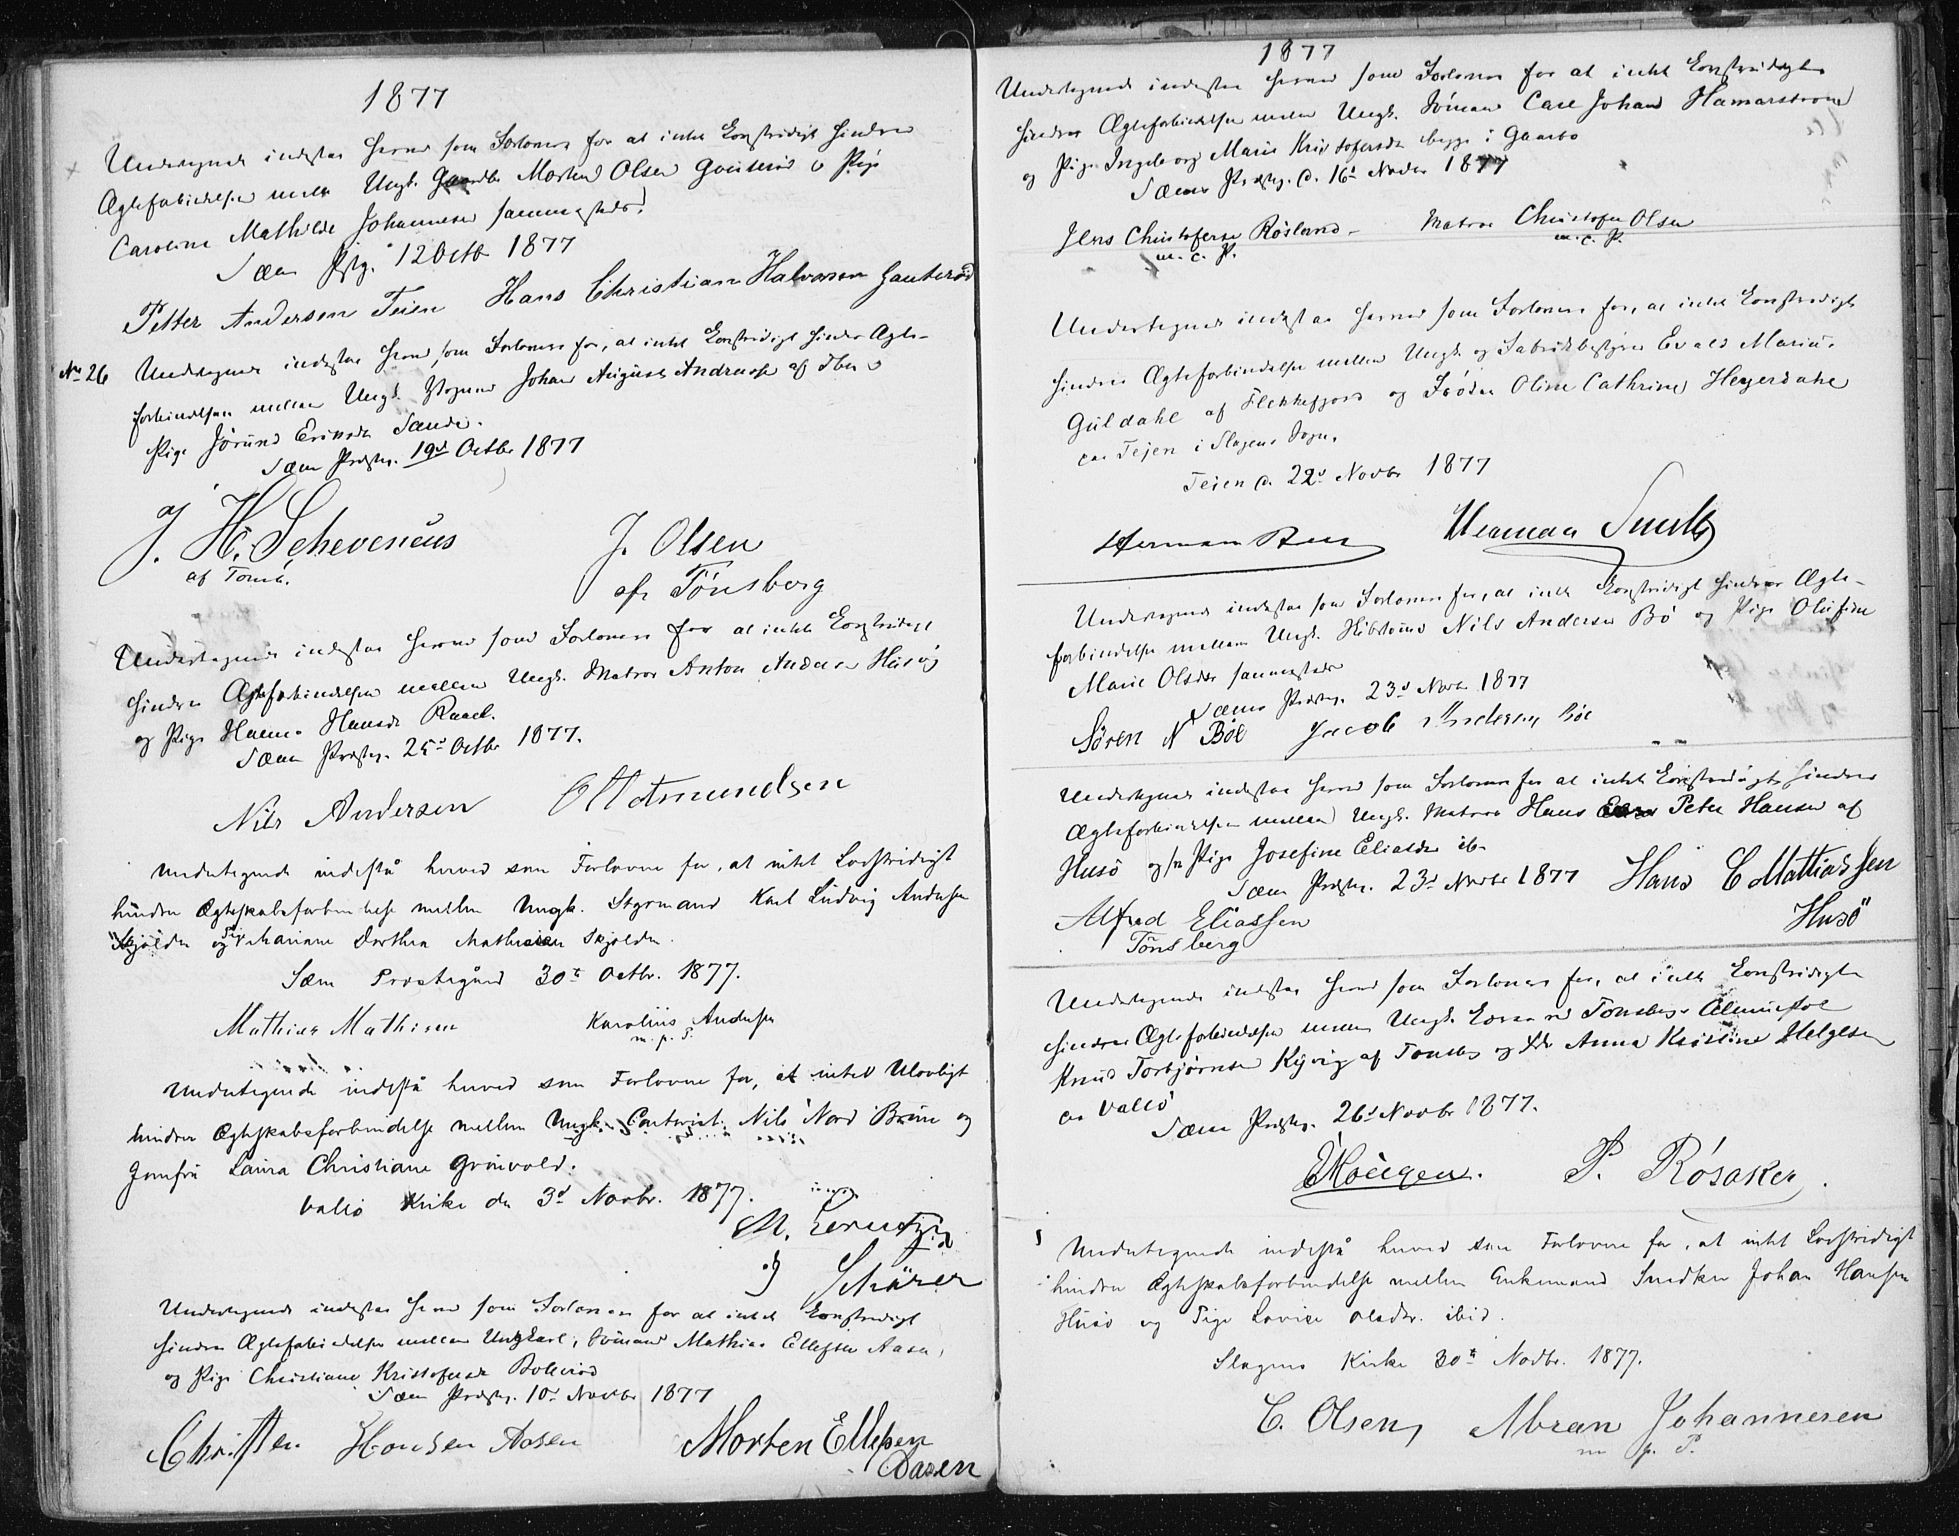 1877
Undertegnede indestaa herved som Forlovere for at intet Lovstridigt hindrer
Ægteforbindelsen mellem Ungk. Morten Olsen Gauterød & Pige
Caroline Mathilde Johannesen sammesteds.
Sæm Pstg. 12 Octb 1877
Petter Andersen Teien Hans Christian Halvorsen Gauterød
No 26 Undertegnede indestaa herved som Forlovere for, at intet Lovstridigt hindrer Ægte-
forbindelsen mellem Ungk. Johan August Andreas af
Pige Jørund Eriksdr Sande.
Sæm Prstg. 19d Octbr 1877
J. H. Schevenius J. Olsen
af Tomb. af Tønsberg
Undertegnede indestaa herved som Forlovere for at intet Lovstridigt
hindrer Ægteforbindelsen mellem Ungk. Matros Anton Andersen Husøy
og Pige Hanna Hansdr Raael.
Sæm Prstg. 25d Octbr 1877.
Nils Andersen O Matmundsen
Undertegnede indestå herved som Forlovere for, at intet Lovstridigt
hindrer Ægteskabsforbindelse mellem Ungk. Styrmand Karl Ludvig Andersen
Skjølden og Pige Mariane Dorthea Mathisen Skjølden.
Sæm Prestegård 30te Octbr. 1877.
Mathias Mathisen Karolius Andersen
m. p. P.
Undertegnede indestå herved som Forlovere for, at intet Ulovligt
hindrer Ægteskabsforbindelse mellem Ungk. Contorist Nils Nord Bruun og
Jomfru Laura Christiane Grønvold.
Valø Kirke den 3d Novbr. 1877.
M. Lorentzen
J Schörer
Undertegnede indestaa herved som Forlovere for at intet Lovstridigt
hindrer Ægteforbindelsen mellem Ungkarl, Sømand Mathias Ellefsen Aasen,
og Pige Christiane Kristofersdr Bolerød
Sæm Prstg. 10d Novbr 1877
Christen Hansen Aasen Morten Ellefsen
Aasen
1877
Undertegnede indestaa herved som Forlovere for at intet Lovstridigt
hindrer Ægteforbindelsen mellem Ungk. Sømand Carl Johan Hamarstrøm
og Pige Ingeborg Marie Kristofersdr begge i Gaarbo
Sæm Prstg. d. 16d Novbr 1877
Jens Christofersen Røsland Matros Christofer Olsen
m. c. P. m. c. P.
Undertegnede indestaa herved som Forlovere for, at intet Lovstridigt
hindrer Ægteforbindelsen mellem Ungk. og Fabrikbestyrer Evald Marius
Guldahl af Flekkefjord og Frøken Oline Cathrine Heyerdahl
af Teien i Slagens Sogn.
Teien d. 22d Novbr 1877
Herman Herman Smith
Undertegnede indestaa som Forlovere for, at intet Lovstridigt hindrer Ægte-
forbindelse mellem Ungk. Nils Andersen Bø og Pige Olufine
Marie Olsdr sammesteds
Sæms Prstg. 23d Novbr 1877
Søren N Bøe Jacob Andersen Bøe
Undertegnede indestaa herved som Forlovere for at intet Lovstridigt hindrer
Ægteforbindelsen mellem Ungk. Matros Hans Peter Hansen af
Husø og Pige Josefine Eliasdr ib.
Sæm Prstg. 23d Novbr 1877 Hans C Mathiassen
Alfred Eliassen Husö
Tönsberg
Undertegnede indestaa herved som Forlovere for, at intet Lovstridigt
hindrer Ægteforbindelsen mellem Ungk. Lærer ved Tønsbergs Almueskole
Knud Torbjørnsen Kyvig af Tønsbg og Anna Kristine Helgesen
af Valø
Sæm Prstg. 26d Novbr 1877.
E Mougen. P. Røsaker.
Undertegnede indestå herved som Forlovere for, at intet Lovstridigt
hindrer Ægteskabsforbindelse mellem Enkemand Snedker Johan Hansen
Husø og Pige Lovise Olsdr. ibid.
Slagens Kirke 30te Novbr. 1877.
C. Olsen, Abran Johannesen
m p. P.